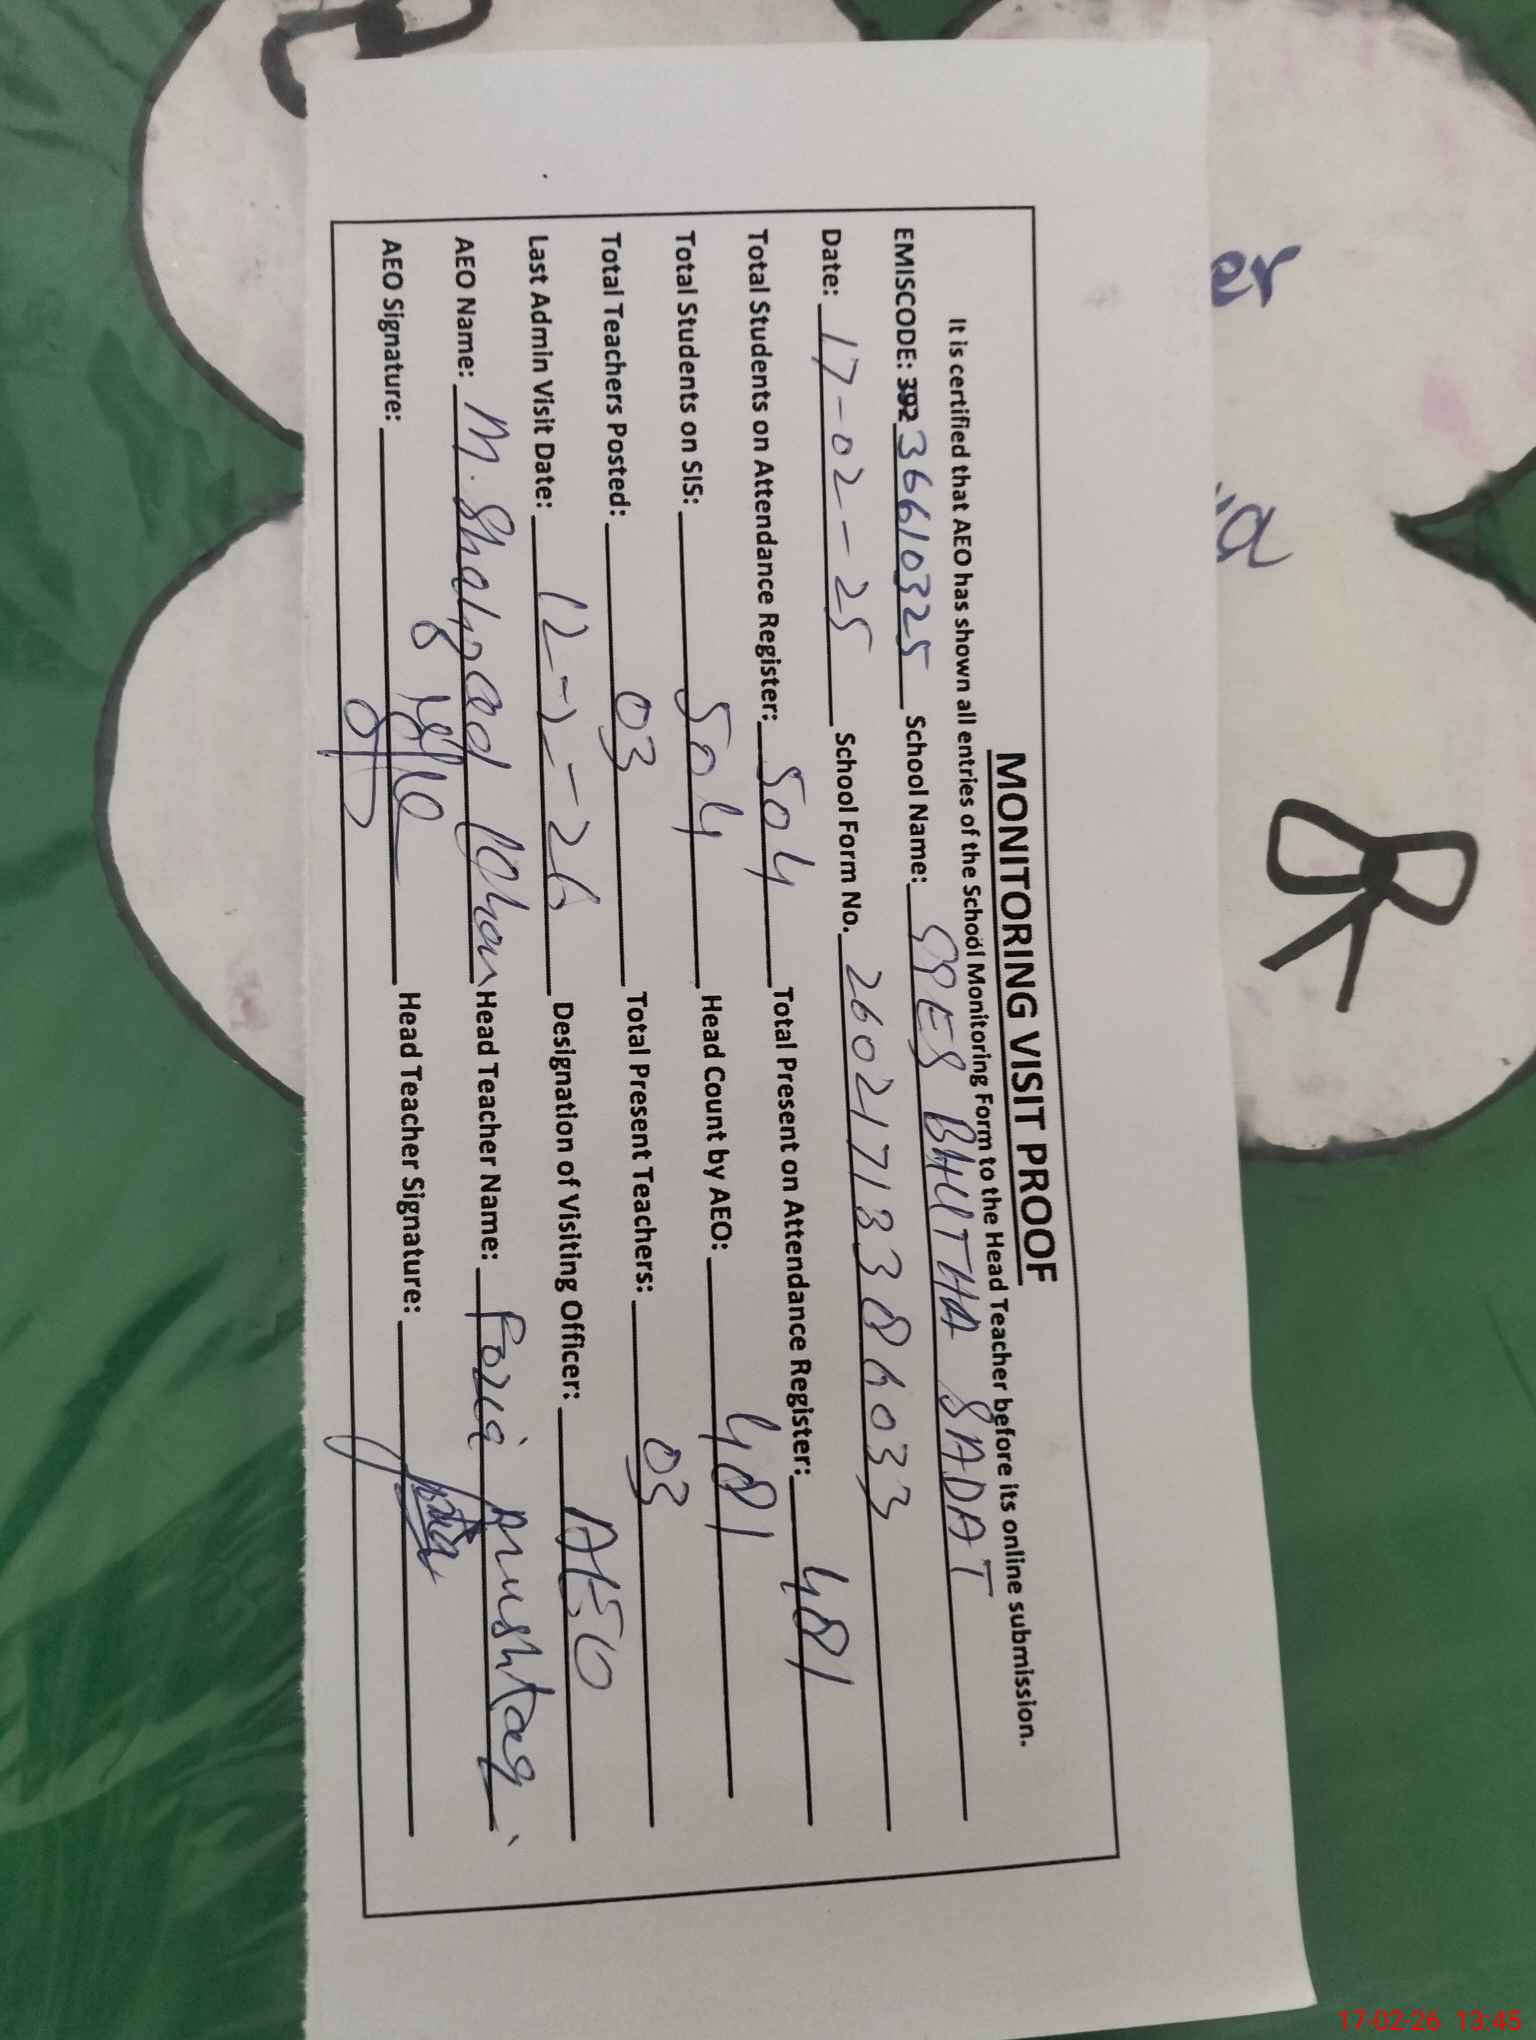 MONITORING VISIT PROOF
It is certified that AEO has shown all entries of the School Monitoring Form to the Head Teacher before its online submission.
EMISCODE: 392 36610325 School Name: GPES BHUTHA SADAT
Date: 17-02-25 School Form No. 26021713386033
Total Students on Attendance Register: 504 Total Present on Attendance Register: 481
Total Students on SIS: 504 Head Count by AEO: 481
Total Teachers Posted: 03 Total Present Teachers: 03
Last Admin Visit Date: 12-2-26 Designation of Visiting Officer: AEO
AEO Name: M. Shahzad Khan Head Teacher Name: Fozia Mushtaq
AEO Signature: Head Teacher Signature:
17-02-26 13:45